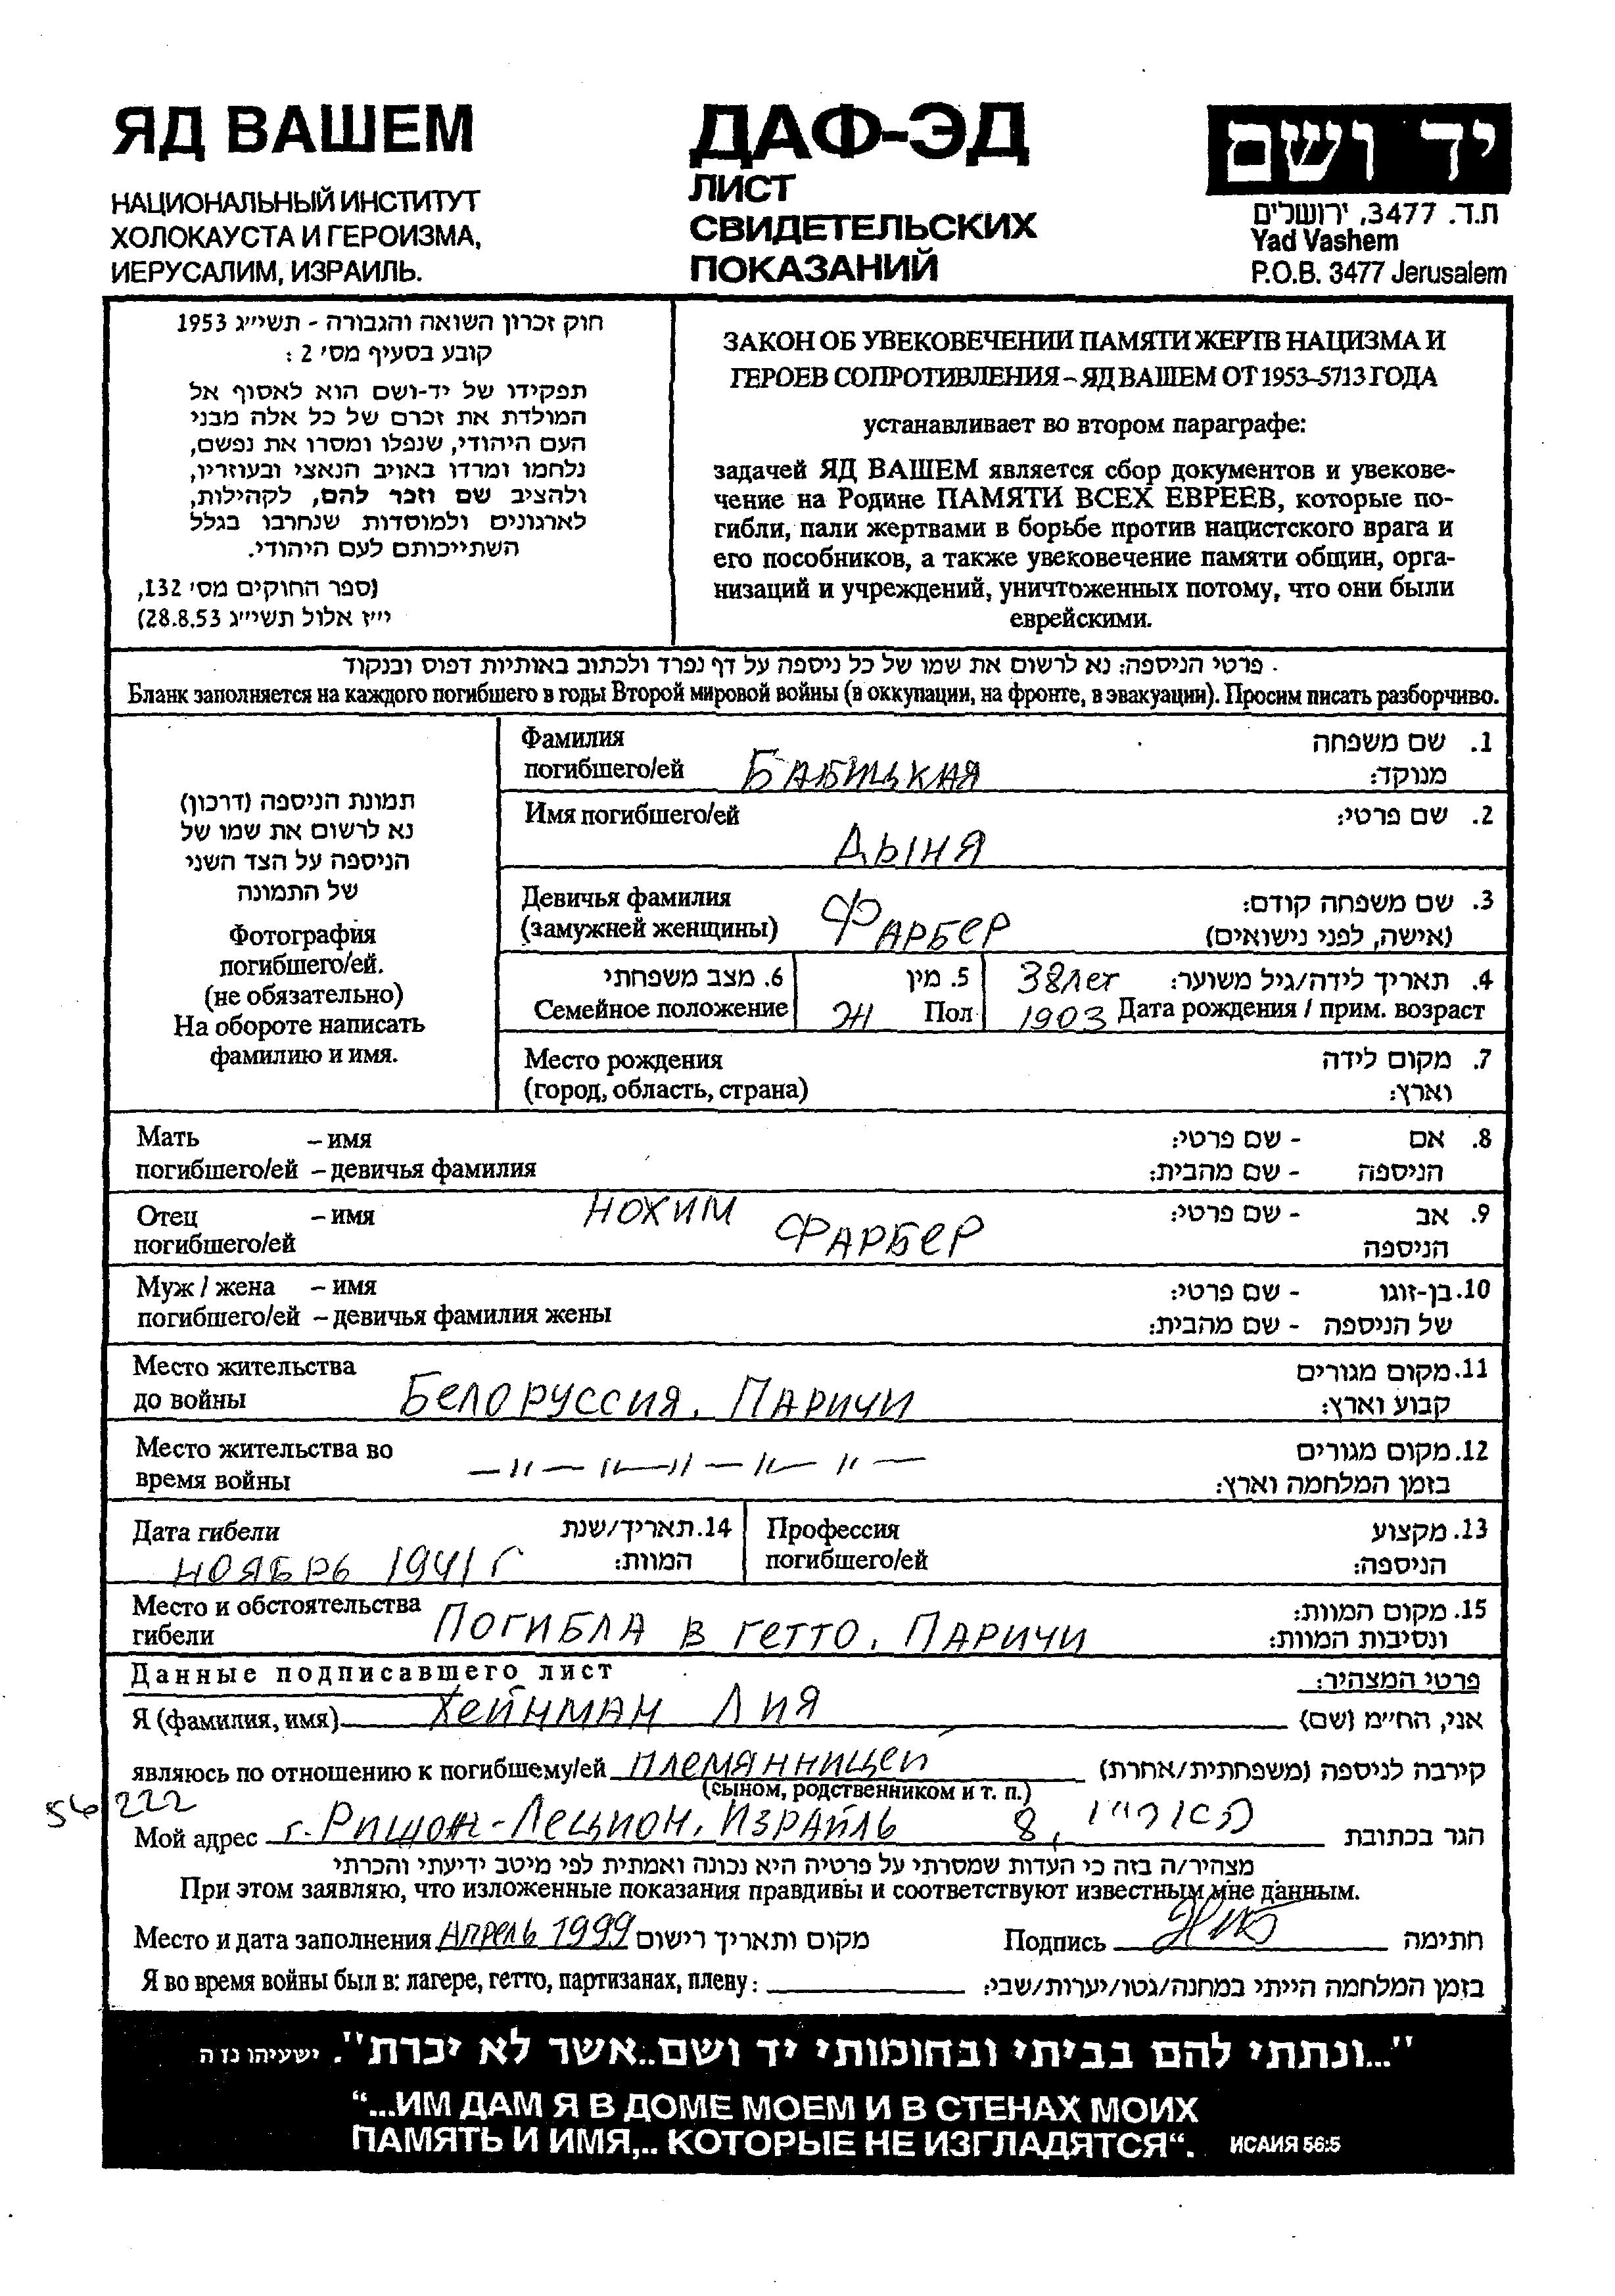 ЯД ВАШЕМ
НАЦИОНАЛЬНЫЙ ИНСТИТУТ
ХОЛОКАУСТА И ГЕРОИЗМА,
ИЕРУСАЛИМ, ИЗРАИЛЬ.
ДАФ-ЭД
ЛИСТ
СВИДЕТЕЛЬСКИХ
ПОКАЗАНИЙ
יד ושם
ת.ד. 3477, ירושלים
Yad Vashem
P.O.B. 3477 Jerusalem
חוק זכרון השואה והגבורה - תשי״ג 1953
קובע בסעיף מס׳ 2 :
תפקידו של יד-ושם הוא לאסוף אל
המולדת את זכרם של כל אלה מבני
העם היהודי, שנפלו ומסרו את נפשם,
נלחמו ומרדו באויב הנאצי ובעוזריו,
ולהציב שם וזכר להם, לקהילות,
לארגונים ולמוסדות שנחרבו בגלל
השתייכותם לעם היהודי.
(ספר החוקים מס׳ 132,
י״ז אלול תשי״ג 28.8.53)
ЗАКОН ОБ УВЕКОВЕЧЕНИИ ПАМЯТИ ЖЕРТВ НАЦИЗМА И
ГЕРОЕВ СОПРОТИВЛЕНИЯ – ЯД ВАШЕМ ОТ 1953–5713 ГОДА
устанавливает во втором параграфе:
задачей ЯД ВАШЕМ является сбор документов и увекове-
чение на Родине ПАМЯТИ ВСЕХ ЕВРЕЕВ, которые по-
гибли, пали жертвами в борьбе против нацистского врага и
его пособников, а также увековечение памяти общин, орга-
низаций и учреждений, уничтоженных потому, что они были
еврейскими.
פרטי הניספה: נא לרשום את שמו של כל ניספה על דף נפרד ולכתוב באותיות דפוס ובנקוד
Бланк заполняется на каждого погибшего в годы Второй мировой войны (в оккупации, на фронте, в эвакуации). Просим писать разборчиво.
תמונת הניספה (דרכון)
נא לרשום את שמו של
הניספה על הצד השני
של התמונה
Фотография
погибшего/ей.
(не обязательно)
На обороте написать
фамилию и имя.
Фамилия 1. שם משפחה
погибшего/ей БАБИЦКАЯ מנוקד:
Имя погибшего/ей 2. שם פרטי:
ДЫНЯ
Девичья фамилия 3. שם משפחה קודם:
(замужней женщины) ФАРБЕР (אישה, לפני נישואים)
6. מצב משפחתי 5. מין 38 лет 4. תאריך לידה/גיל משוער:
Семейное положение Ж Пол 1903 Дата рождения / прим. возраст
Место рождения 7. מקום לידה
(город, область, страна) וארץ:
Мать – имя 8. אם - שם פרטי:
погибшего/ей – девичья фамилия הניספה - שם מהבית:
Отец – имя НОХИМ 9. אב - שם פרטי:
погибшего/ей ФАРБЕР הניספה
Муж / жена – имя 10. בן-זוגו - שם פרטי:
погибшего/ей – девичья фамилия жены של הניספה - שם מהבית:
Место жительства 11. מקום מגורים
до войны БЕЛОРУССИЯ. ПАРИЧИ קבוע וארץ:
Место жительства во 12. מקום מגורים
время войны —〃—〃—〃—〃—〃— בזמן המלחמה וארץ:
Дата гибели 14. תאריך/שנת Профессия 13. מקצוע
НОЯБРЬ 1941 Г המוות: погибшего/ей הניספה:
Место и обстоятельства 15. מקום המוות:
гибели ПОГИБЛА В ГЕТТО. ПАРИЧИ ונסיבות המוות:
Данные подписавшего лист פרטי המצהיר:
Я (фамилия, имя) ХЕЙНМАН ЛИЯ אני, הח״מ (שם)
являюсь по отношению к погибшему/ей ПЛЕМЯННИЦЕЙ קירבה לניספה (משפחתית/אחרת)
(сыном, родственником и т. п.)
Мой адрес г. Ришон-Лецион. Израиль 8, הגר בכתובת
מצהיר/ה בזה כי העדות שמסרתי על פרטיה היא נכונה ואמתית לפי מיטב ידיעתי והכרתי
При этом заявляю, что изложенные показания правдивы и соответствуют известным мне данным.
Место и дата заполнения АПРЕЛЬ 1999 מקום ותאריך רישום Подпись חתימה
Я во время войны был в: лагере, гетто, партизанах, плену: בזמן המלחמה הייתי במחנה/גטו/יערות/שבי:
״...ונתתי להם בביתי ובחומותי יד ושם..אשר לא יכרת״. ישעיהו נז ה
“...ИМ ДАМ Я В ДОМЕ МОЕМ И В СТЕНАХ МОИХ
ПАМЯТЬ И ИМЯ,.. КОТОРЫЕ НЕ ИЗГЛАДЯТСЯ“. ИСАИЯ 56:5